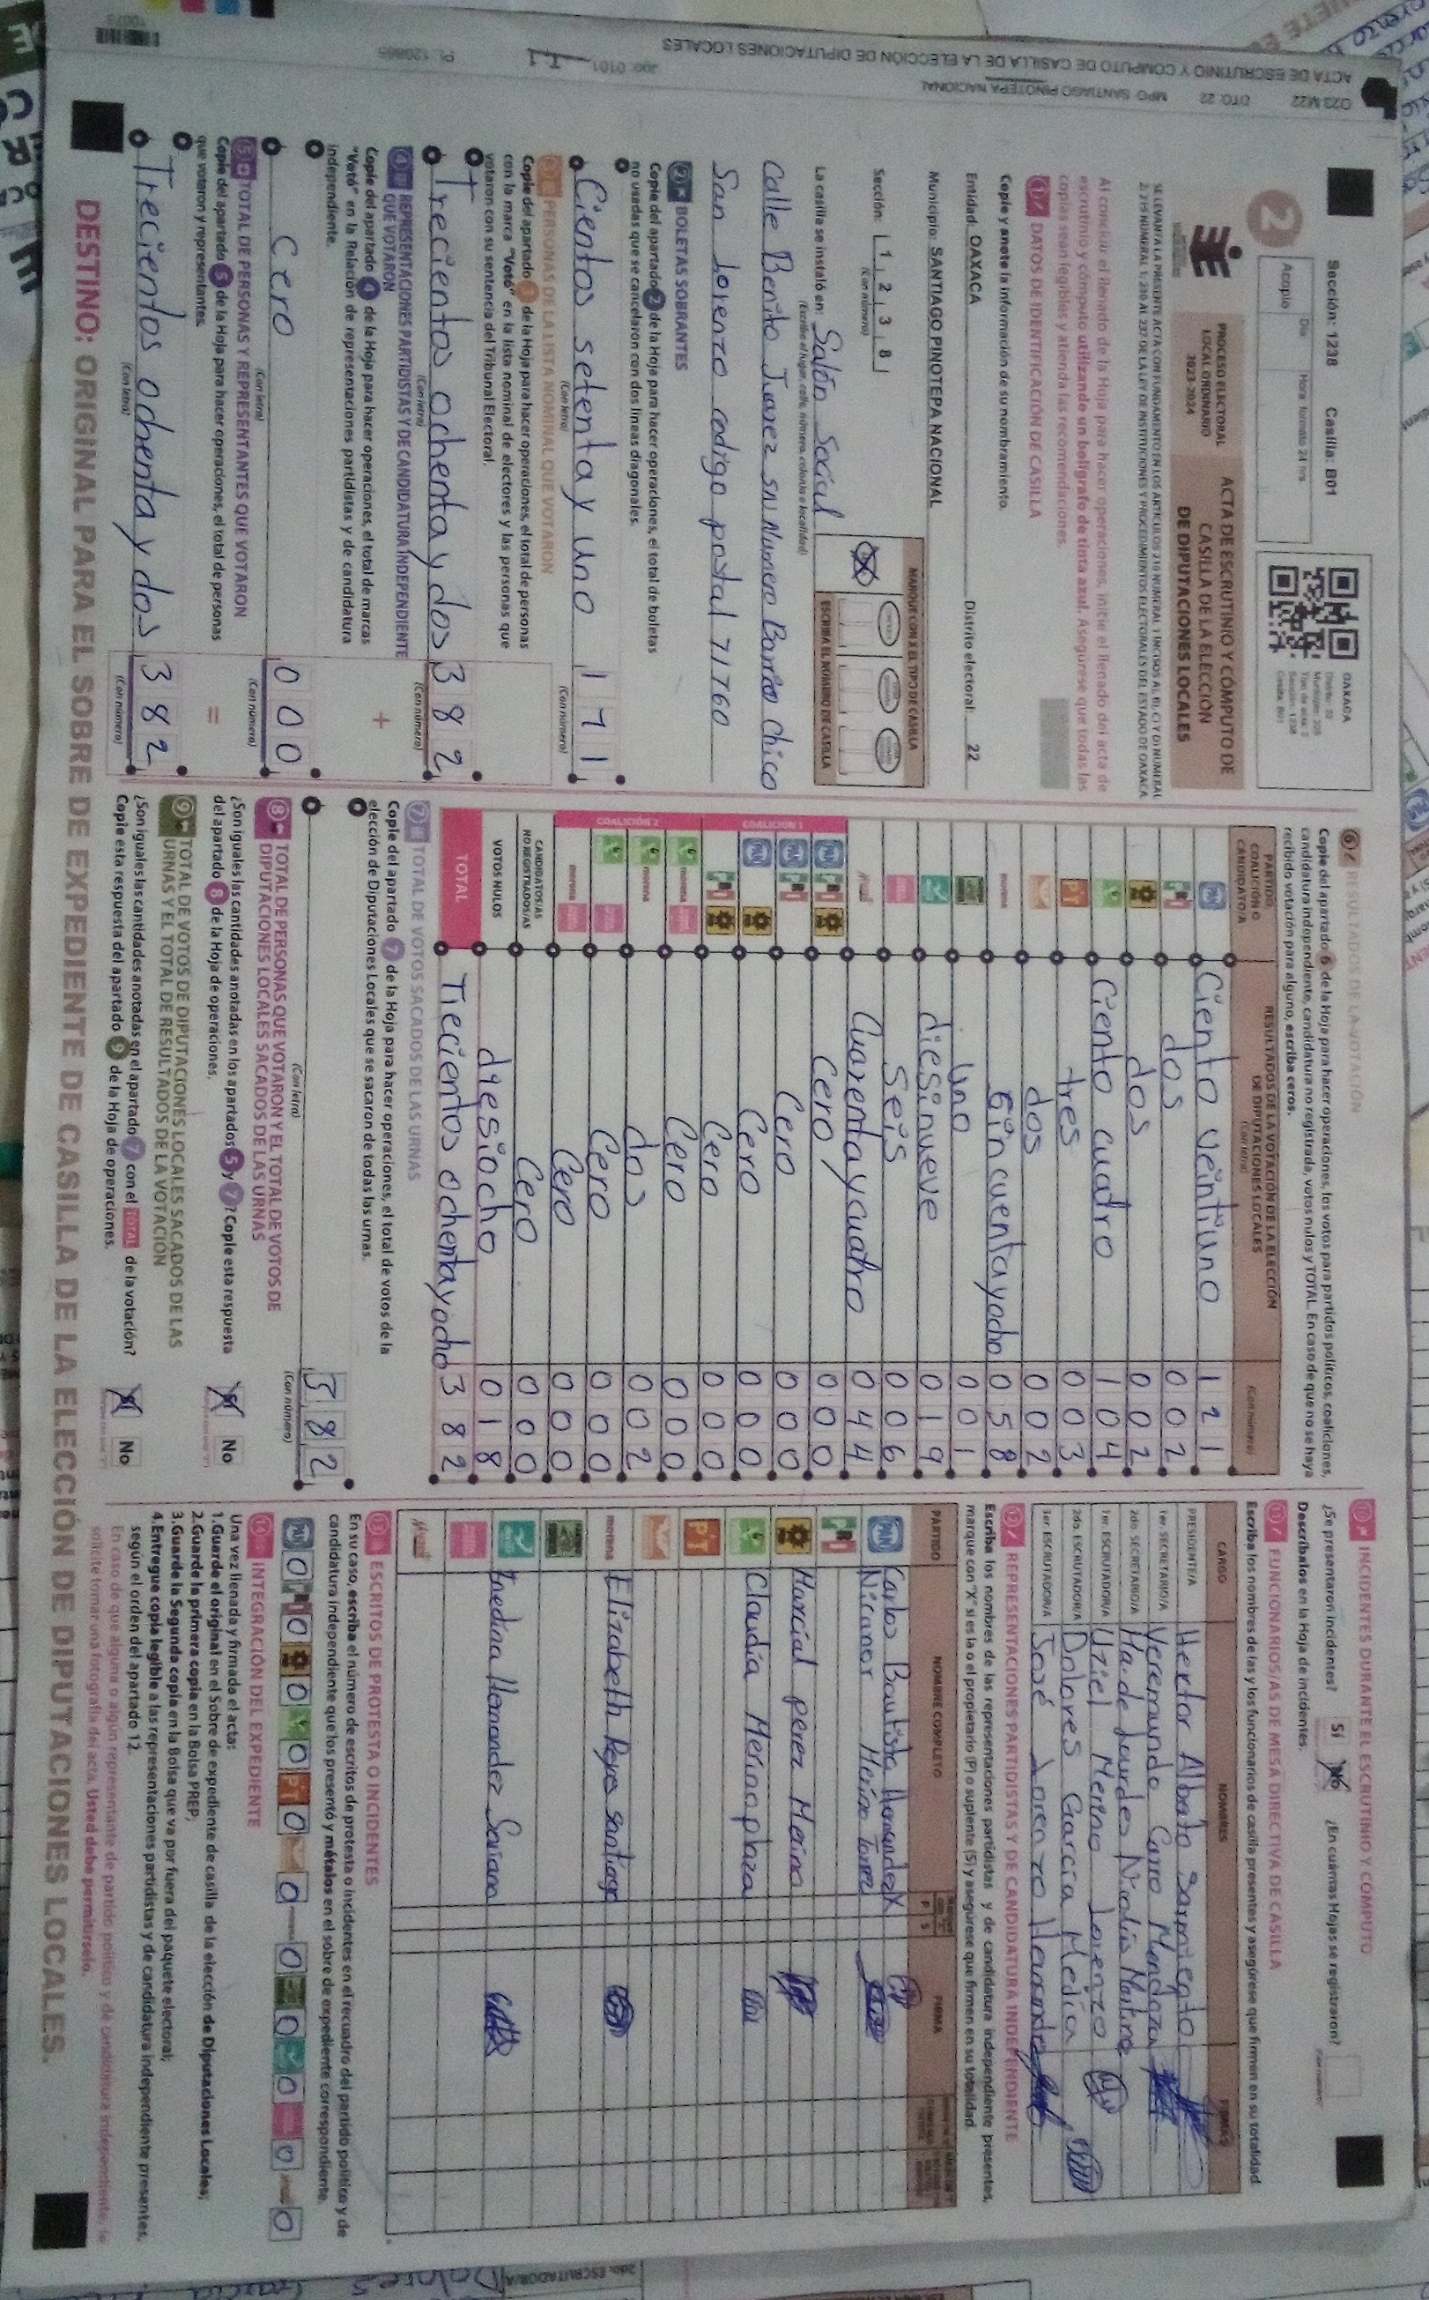 ACTA DE ESCRUTINIO Y CÓMPUTO DE CASILLA DE LA ELECCIÓN DE DIPUTACIONES LOCALES
023 M22 DTO: 22 MPO: SANTIAGO PINOTEPA NACIONAL
Sección: 1238 Casilla: B01
OAXACA
2
Acopio
Día
Hora: formato 24 hrs
PROCESO ELECTORAL
LOCAL ORDINARIO
2023-2024
ACTA DE ESCRUTINIO Y CÓMPUTO DE
CASILLA DE LA ELECCIÓN
DE DIPUTACIONES LOCALES
Al concluir el llenado de la Hoja para hacer operaciones, inicie el llenado del acta de
escrutinio y cómputo utilizando un bolígrafo de tinta azul. Asegúrese que todas las
copias sean legibles y atienda las recomendaciones.
1 DATOS DE IDENTIFICACIÓN DE CASILLA
Copie y anote la información de su nombramiento.
Entidad: OAXACA Distrito electoral: 22
Municipio: SANTIAGO PINOTEPA NACIONAL
MARQUE CON X EL TIPO DE CASILLA
ESCRIBA EL NÚMERO DE CASILLA
Sección: 1 2 3 8
(Con número)
La casilla se instaló en: Salón Social
(Escriba el lugar, calle, número, colonia o localidad)
Calle Benito Juarez SN Numero Barrio Chico
San Lorenzo codigo postal 71760
2 BOLETAS SOBRANTES
Copie del apartado 2 de la Hoja para hacer operaciones, el total de boletas
no usadas que se cancelaron con dos líneas diagonales.
Cientos setenta y uno 1 7 1
(Con letra) (Con número)
3 PERSONAS DE LA LISTA NOMINAL QUE VOTARON
Copie del apartado 3 de la Hoja para hacer operaciones, el total de personas
con la marca "Votó" en la lista nominal de electores y las personas que
votaron con su sentencia del Tribunal Electoral.
Trecientos ochenta y dos 3 8 2
(Con letra) (Con número)
+
4 REPRESENTACIONES PARTIDISTAS Y DE CANDIDATURA INDEPENDIENTE
QUE VOTARON
Copie del apartado 4 de la Hoja para hacer operaciones, el total de marcas
"Votó" en la Relación de representaciones partidistas y de candidatura
independiente.
Cero 0 0 0
(Con letra) (Con número)
=
5 TOTAL DE PERSONAS Y REPRESENTANTES QUE VOTARON
Copie del apartado 5 de la Hoja para hacer operaciones, el total de personas
que votaron y representantes.
Trecientos ochenta y dos 3 8 2
(Con letra) (Con número)
6 RESULTADOS DE LA VOTACIÓN
Copie del apartado 6 de la Hoja para hacer operaciones, los votos para partidos políticos, coaliciones,
candidatura independiente, candidatura no registrada, votos nulos y TOTAL. En caso de que no se haya
recibido votación para alguno, escriba ceros.
PARTIDO, COALICIÓN O CANDIDATO/A
RESULTADOS DE LA VOTACIÓN DE LA ELECCIÓN
DE DIPUTACIONES LOCALES
(Con letra) (Con número)
PAN Ciento veintiuno 1 2 1
PRI dos 0 0 2
dos 0 0 2
Ciento cuatro 1 0 4
PT tres 0 0 3
dos 0 0 2
morena Cincuenta y ocho 0 5 8
uno 0 0 1
diesinueve 0 1 9
Seis 0 0 6
Cuarenta y cuatro 0 4 4
COALICIÓN 1
Cero 0 0 0
Cero 0 0 0
Cero 0 0 0
Cero 0 0 0
COALICIÓN 2
Cero 0 0 0
dos 0 0 2
Cero 0 0 0
Cero 0 0 0
CANDIDATOS/AS NO REGISTRADOS/AS Cero 0 0 0
VOTOS NULOS diesiocho 0 1 8
TOTAL Trecientos ochenta y ocho 3 8 2
7 TOTAL DE VOTOS SACADOS DE LAS URNAS
Copie del apartado 7 de la Hoja para hacer operaciones, el total de votos de la
elección de Diputaciones Locales que se sacaron de todas las urnas.
3 8 2
(Con letra) (Con número)
8 TOTAL DE PERSONAS QUE VOTARON Y EL TOTAL DE VOTOS DE
DIPUTACIONES LOCALES SACADOS DE LAS URNAS
¿Son iguales las cantidades anotadas en los apartados 5 y 7? Copie esta respuesta
del apartado 8 de la Hoja de operaciones.
No
9 TOTAL DE VOTOS DE DIPUTACIONES LOCALES SACADOS DE LAS
URNAS Y EL TOTAL DE RESULTADOS DE LA VOTACIÓN
¿Son iguales las cantidades anotadas en el apartado 7 con el TOTAL de la votación?
Copie esta respuesta del apartado 9 de la Hoja de operaciones.
No
10 INCIDENTES DURANTE EL ESCRUTINIO Y CÓMPUTO
¿Se presentaron incidentes? Sí No ¿En cuántas Hojas se registraron?
Descríbalos en la Hoja de incidentes.
11 FUNCIONARIOS/AS DE MESA DIRECTIVA DE CASILLA
Escriba los nombres de las y los funcionarios de casilla presentes y asegúrese que firmen en su totalidad.
CARGO NOMBRES FIRMAS
PRESIDENTE/A Hector Abato Sarmiento
1er. SECRETARIO/A Veremundo Carro Mendoza
2do. SECRETARIO/A Ma. de Lourdes Nicolas Martine
1er. ESCRUTADOR/A Uziel Merino Lorenzo
2do. ESCRUTADOR/A Dolores Garcia Medina
3er. ESCRUTADOR/A José Lorenzo Hernandez
12 REPRESENTACIONES PARTIDISTAS Y DE CANDIDATURA INDEPENDIENTE
Escriba los nombres de las representaciones partidistas y de candidatura independiente presentes,
marque con "X" si es la o el propietario (P) o suplente (S) y asegúrese que firmen en su totalidad.
PARTIDO NOMBRE COMPLETO P S FIRMA
PAN Carlos Bautista Hernandez X
Nicanor Merino Torres
Marcial perez Merino
Claudia Merino plaza
PT
morena Elizabeth Reyes santiago
Inedina Hernandez Soriano
13 ESCRITOS DE PROTESTA O INCIDENTES
En su caso, escriba el número de escritos de protesta o incidentes en el recuadro del partido político y de
candidatura independiente que los presentó y métalos en el sobre de expediente correspondiente.
0 0 0 0 0 0 0 0 0 0 0
14 INTEGRACIÓN DEL EXPEDIENTE
Una vez llenada y firmada el acta:
1. Guarde el original en el Sobre de expediente de casilla de la elección de Diputaciones Locales;
2. Guarde la primera copia en la Bolsa PREP;
3. Guarde la Segunda copia en la Bolsa que va por fuera del paquete electoral;
4. Entregue copia legible a las representaciones partidistas y de candidatura independiente presentes,
según el orden del apartado 12.
En caso de que alguna o algún representante de partido político y de candidatura independiente, le
solicite tomar una fotografía del acta. Usted debe permitírselo.
DESTINO: ORIGINAL PARA EL SOBRE DE EXPEDIENTE DE CASILLA DE LA ELECCIÓN DE DIPUTACIONES LOCALES.